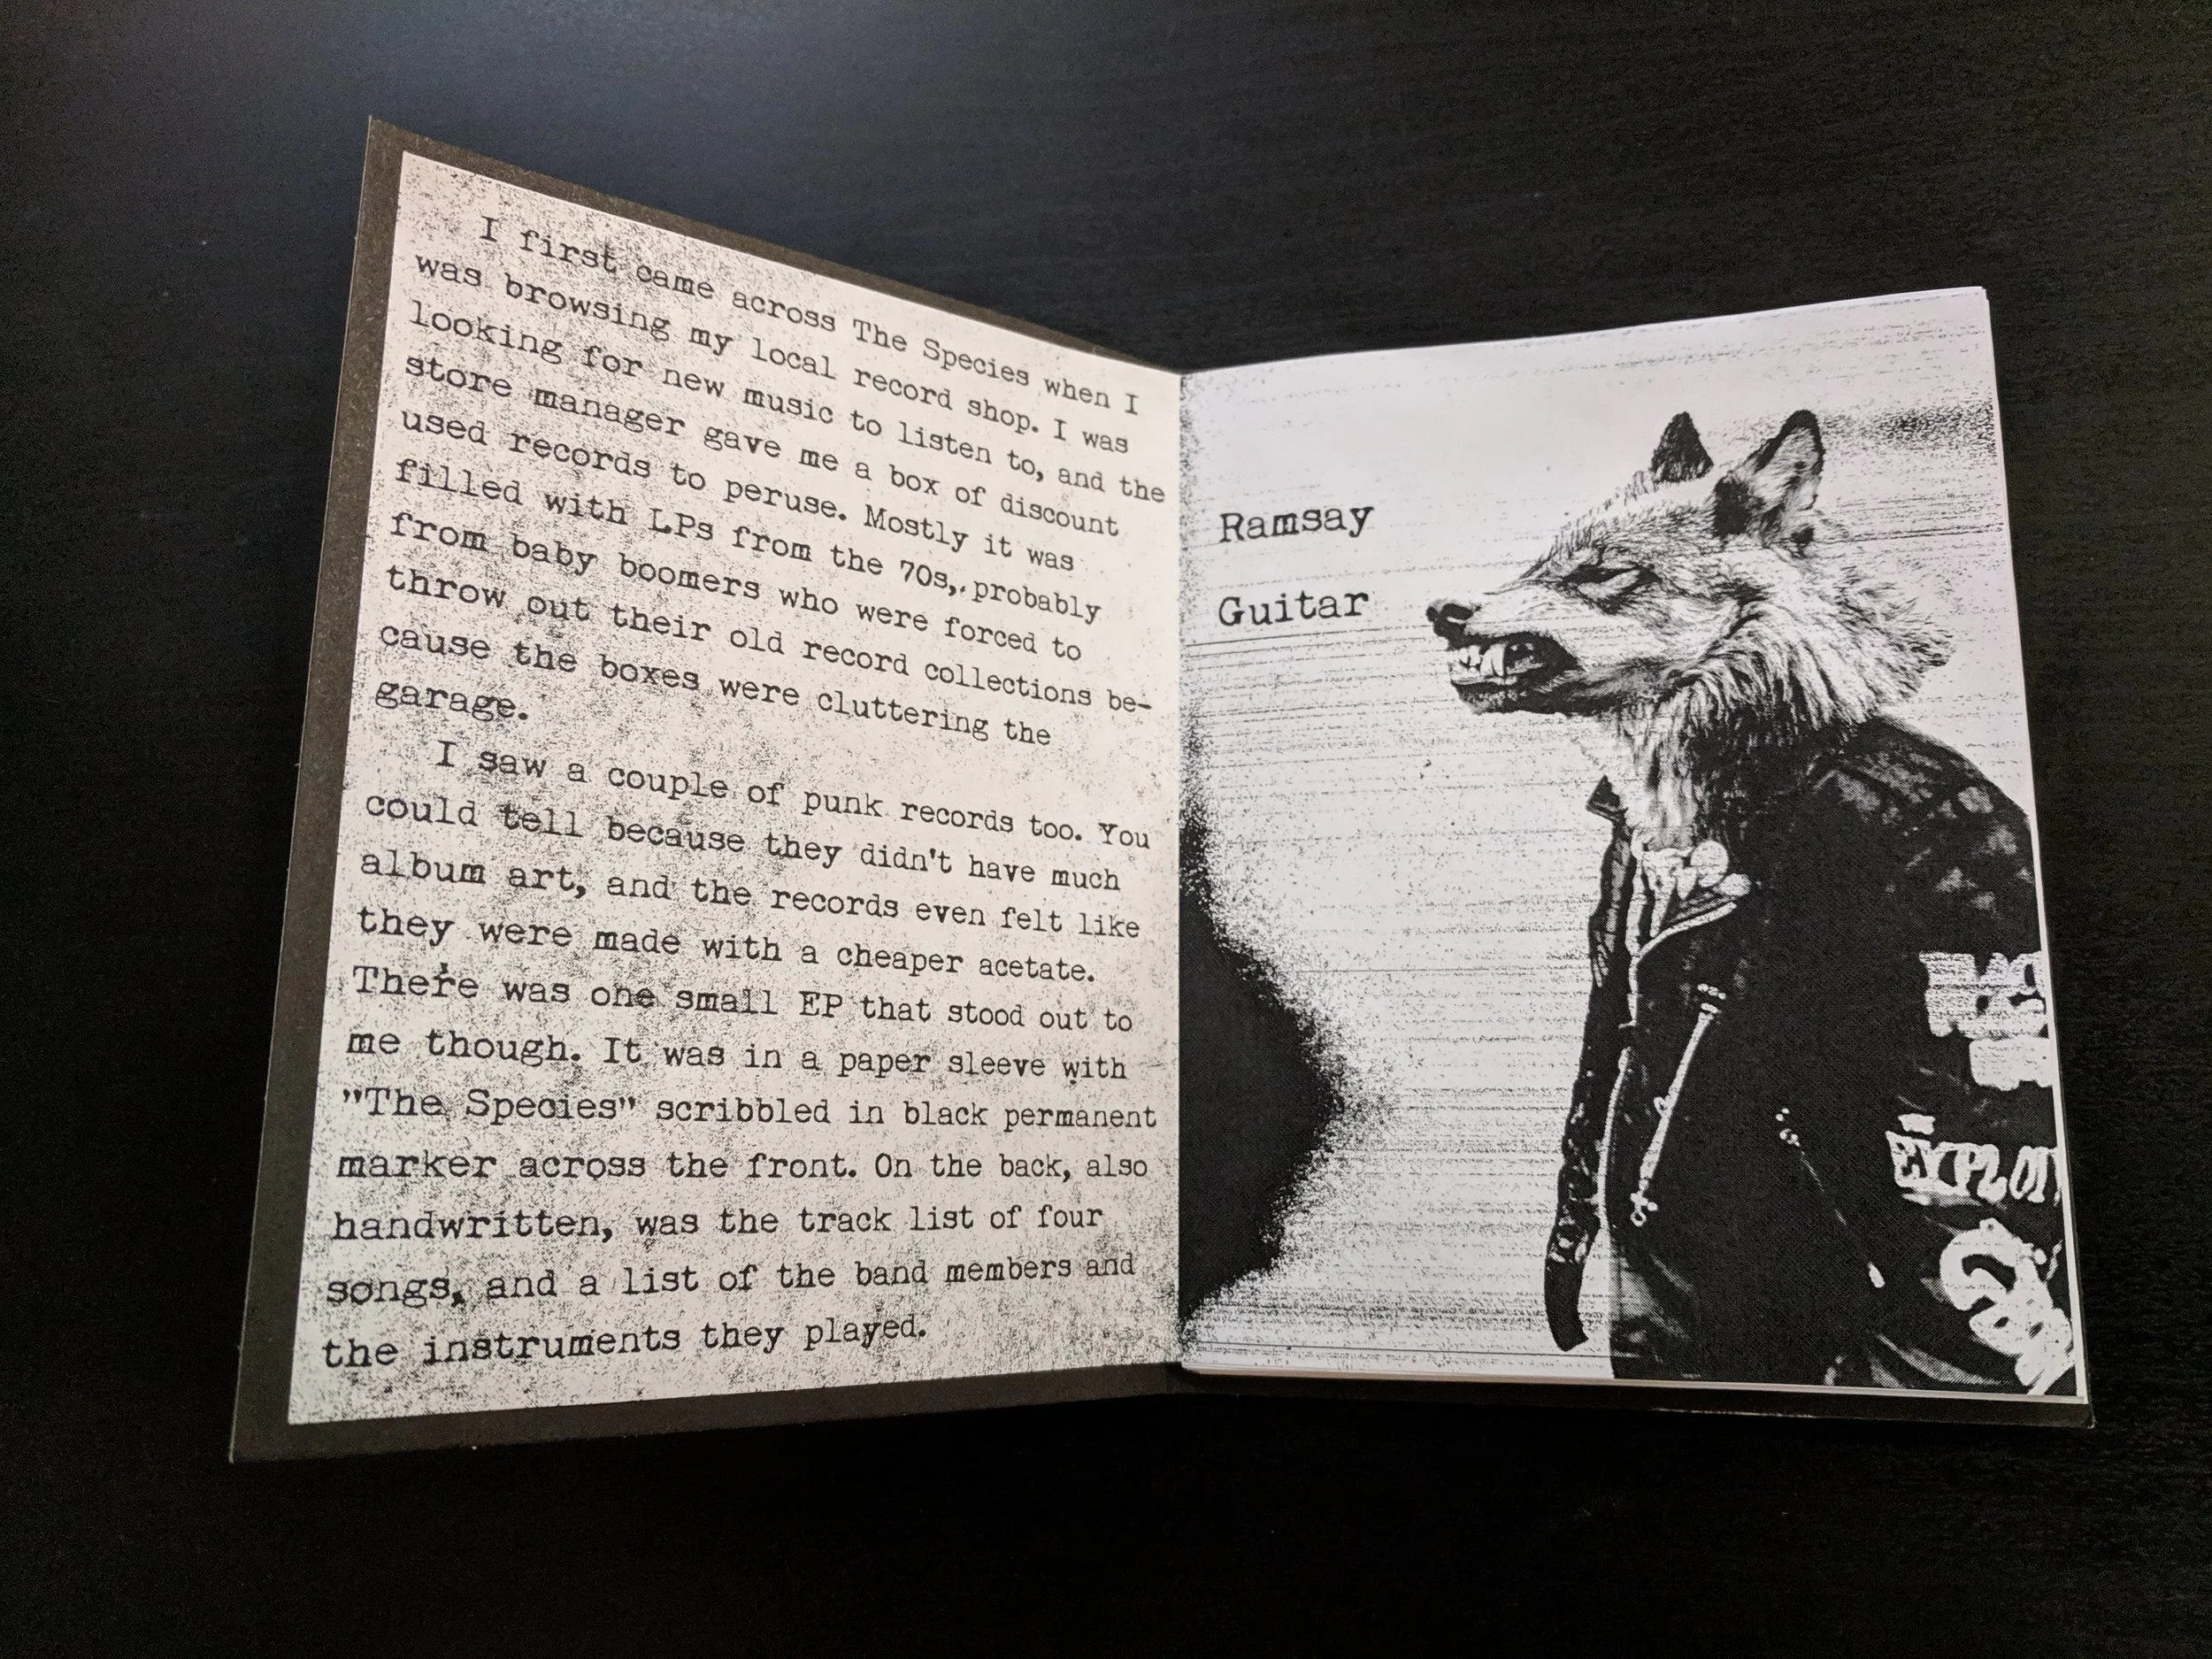 I first came across The Species when I
was browsing my local record shop. I was
looking for new music to listen to, and the
store manager gave me a box of discount
used records to peruse. Mostly it was
filled with LPs from the 70s, probably
from baby boomers who were forced to
throw out their old record collections be-
cause the boxes were cluttering the
garage.
I saw a couple of punk records too. You
could tell because they didn't have much
album art, and the records even felt like
they were made with a cheaper acetate.
There was one small EP that stood out to
me though. It was in a paper sleeve with
"The Species" scribbled in black permanent
marker across the front. On the back, also
handwritten, was the track list of four
songs, and a list of the band members and
the instruments they played.
Ramsay
Guitar
EXPLOI